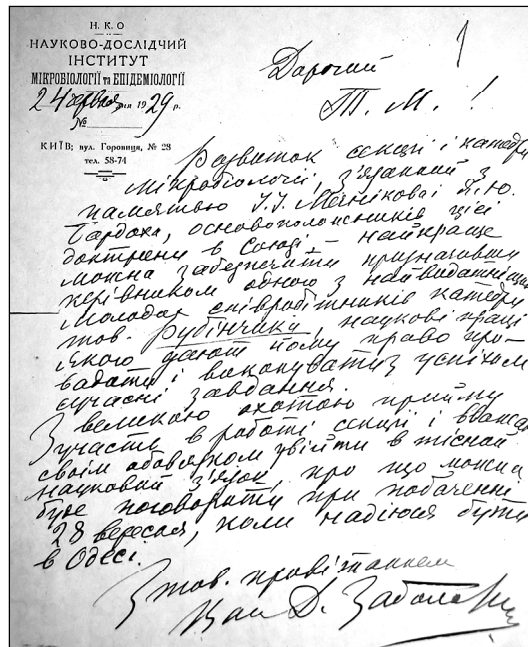 Н. К. О
НАУКОВО-ДОСЛІДЧИЙ
ІНСТИТУТ
МІКРОБІОЛОГІЇ та ЕПІДЕМІОЛОГІЇ
24 червня 1929 р.
№
КИЇВ; вул. Горовица, № 28
тел. 58-74
Дорогий
Т. М. !
Розвиток секції і катедри
мікробіології, з'язаний з
памятью І. І. Мечнікова і Я. Ю.
Бардаха, основоположників цієї
доктрени в Союзі, – найкраще
можна забезпечити призначивши
керівником одного з найвидатніших
молодих співробітників катедри
тов. Рубінчика, наукові праці
якого дають йому право про-
вадити і виконувати з успіхом
сучасні завдання.
З великою охотою прийму
участь в роботі секції і вважаю
своїм обовязком увійти в тісний
науковий з'язок, про що можна
буде поговорити при побаченні
28 вересня, коли надіюся бути
в Одесі.
З тов. привітанням
Ваш Д. Заболотний